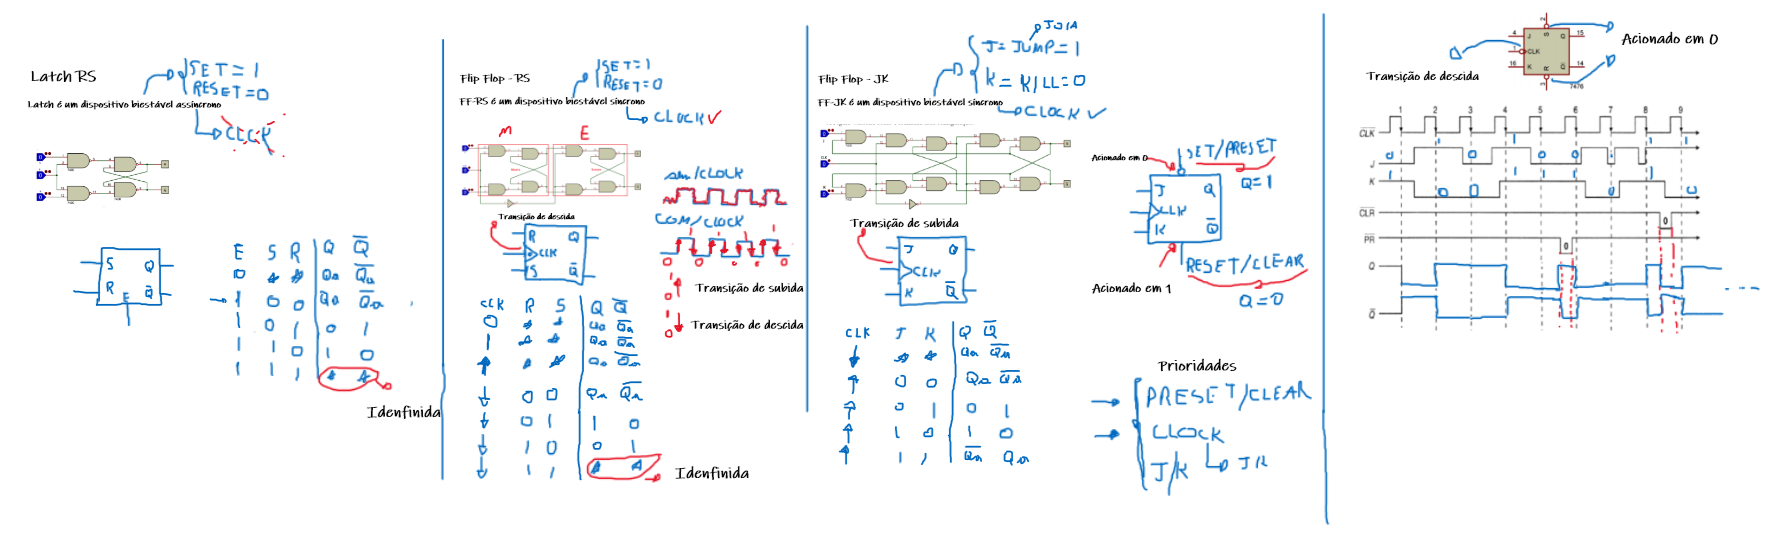 Latch RS
SET = 1
RESET = 0
Latch é um dispositivo biestável assíncrono
CLOCK
S Q
R Q̅
E
E S R Q Q̅
0 * * Qa Q̅a
1 0 0 Qa Q̅a
1 0 1 0 1
1 1 0 1 0
1 1 1 * *
Idenfinida
Flip Flop - RS
SET = 1
RESET = 0
FF-RS é um dispositivo biestável síncrono
CLOCK ✓
M E
Transição de descida
R Q
CLK
S Q̅
SEM/CLOCK
COM/CLOCK
1 1 1 1
0 0 0 0 0
1
0
Transição de subida
1
0
Transição de descida
CLK R S Q Q̅
0 * * Qa Q̅a
1 * * Qa Q̅a
↑ * * Qa Q̅a
↓ 0 0 Qa Q̅a
↓ 0 1 1 0
↓ 1 0 0 1
↓ 1 1 * *
Idenfinida
Flip Flop - JK
J = JUMP = 1
K = KILL = 0
FF-JK é um dispositivo biestável síncrono
CLOCK ✓
Transição de subida
J Q
CLK
K Q̅
CLK J K Q Q̅
↓ * * Qa Q̅a
↑ 0 0 Qa Q̅a
↑ 0 1 0 1
↑ 1 0 1 0
↑ 1 1 Q̅a Qa
Acionado em 0
SET/PRESET
Q = 1
J Q
CLK
K Q̅
RESET/CLEAR
Acionado em 1
Q = 0
Prioridades
PRESET/CLEAR
CLOCK
J/K
JK
Acionado em 0
Transição de descida
4 J S Q 15
1 CLK
16 K R Q̅ 14
2
3
7476
1 2 3 4 5 6 7 8 9
C̅L̅K̅
J
K
C̅L̅R̅
0
P̅R̅
0
Q
Q̅